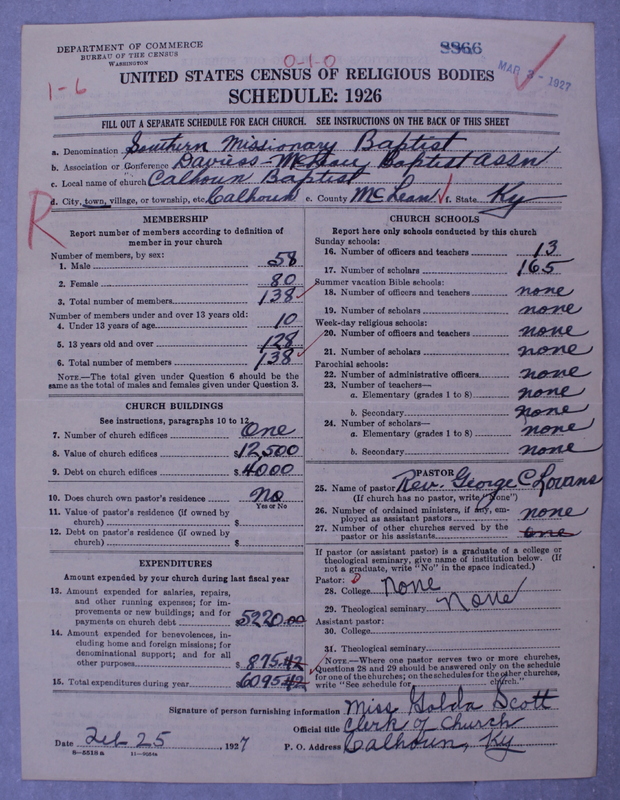 DEPARTMENT OF COMMERCE
BUREAU OF THE CENSUS
WASHINGTON
0-1-0
8866
MAR 3 - 1927
1-6
UNITED STATES CENSUS OF RELIGIOUS BODIES
SCHEDULE: 1926
FILL OUT A SEPARATE SCHEDULE FOR EACH CHURCH. SEE INSTRUCTIONS ON THE BACK OF THIS SHEET
a. Denomination Southern Missionary Baptist
b. Association or Conference Daviess-McLean Baptist assn
c. Local name of church Calhoun Baptist
d. City, town, village, or township, etc. Calhoun e. County McLean f. State Ky
R
MEMBERSHIP
Report number of members according to definition of member in your church
Number of members, by sex:
1. Male 58
2. Female 80
3. Total number of members 138
Number of members under and over 13 years old:
4. Under 13 years of age 10
5. 13 years old and over 128
6. Total number of members 138
NOTE.—The total given under Question 6 should be the same as the total of males and females given under Question 3.
CHURCH BUILDINGS
See instructions, paragraphs 10 to 12
7. Number of church edifices One
8. Value of church edifices $12,500
9. Debt on church edifices $4000
10. Does church own pastor's residence No
Yes or No
11. Value of pastor's residence (if owned by church) $
12. Debt on pastor's residence (if owned by church) $
EXPENDITURES
Amount expended by your church during last fiscal year
13. Amount expended for salaries, repairs, and other running expenses; for improvements or new buildings; and for payments on church debt 5220.00
14. Amount expended for benevolences, including home and foreign missions; for denominational support; and for all other purposes $875.42
15. Total expenditures during year 6095.42
CHURCH SCHOOLS
Report here only schools conducted by this church
Sunday schools:
16. Number of officers and teachers 13
17. Number of scholars 165
Summer vacation Bible schools:
18. Number of officers and teachers none
19. Number of scholars none
Week-day religious schools:
20. Number of officers and teachers none
21. Number of scholars none
Parochial schools:
22. Number of administrative officers none
23. Number of teachers—
a. Elementary (grades 1 to 8) none
b. Secondary none
24. Number of scholars—
a. Elementary (grades 1 to 8) none
b. Secondary none
PASTOR
25. Name of pastor Rev. George C Lovans
(If church has no pastor, write "None")
26. Number of ordained ministers, if any, employed as assistant pastors none
27. Number of other churches served by the pastor or his assistants one
If pastor (or assistant pastor) is a graduate of a college or theological seminary, give name of institution below. (If not a graduate, write "No" in the space indicated.)
Pastor:
28. College None
29. Theological seminary None
Assistant pastor:
30. College
31. Theological seminary
NOTE.—Where one pastor serves two or more churches, Questions 28 and 29 should be answered only on the schedule for one of the churches; on the schedules for the other churches, write "See schedule for church."
Signature of person furnishing information Miss Holda Scott
Official title Clerk of Church
Date Feb 25, 1927 P. O. Address Calhoun, Ky
8-5518a 11-9524a